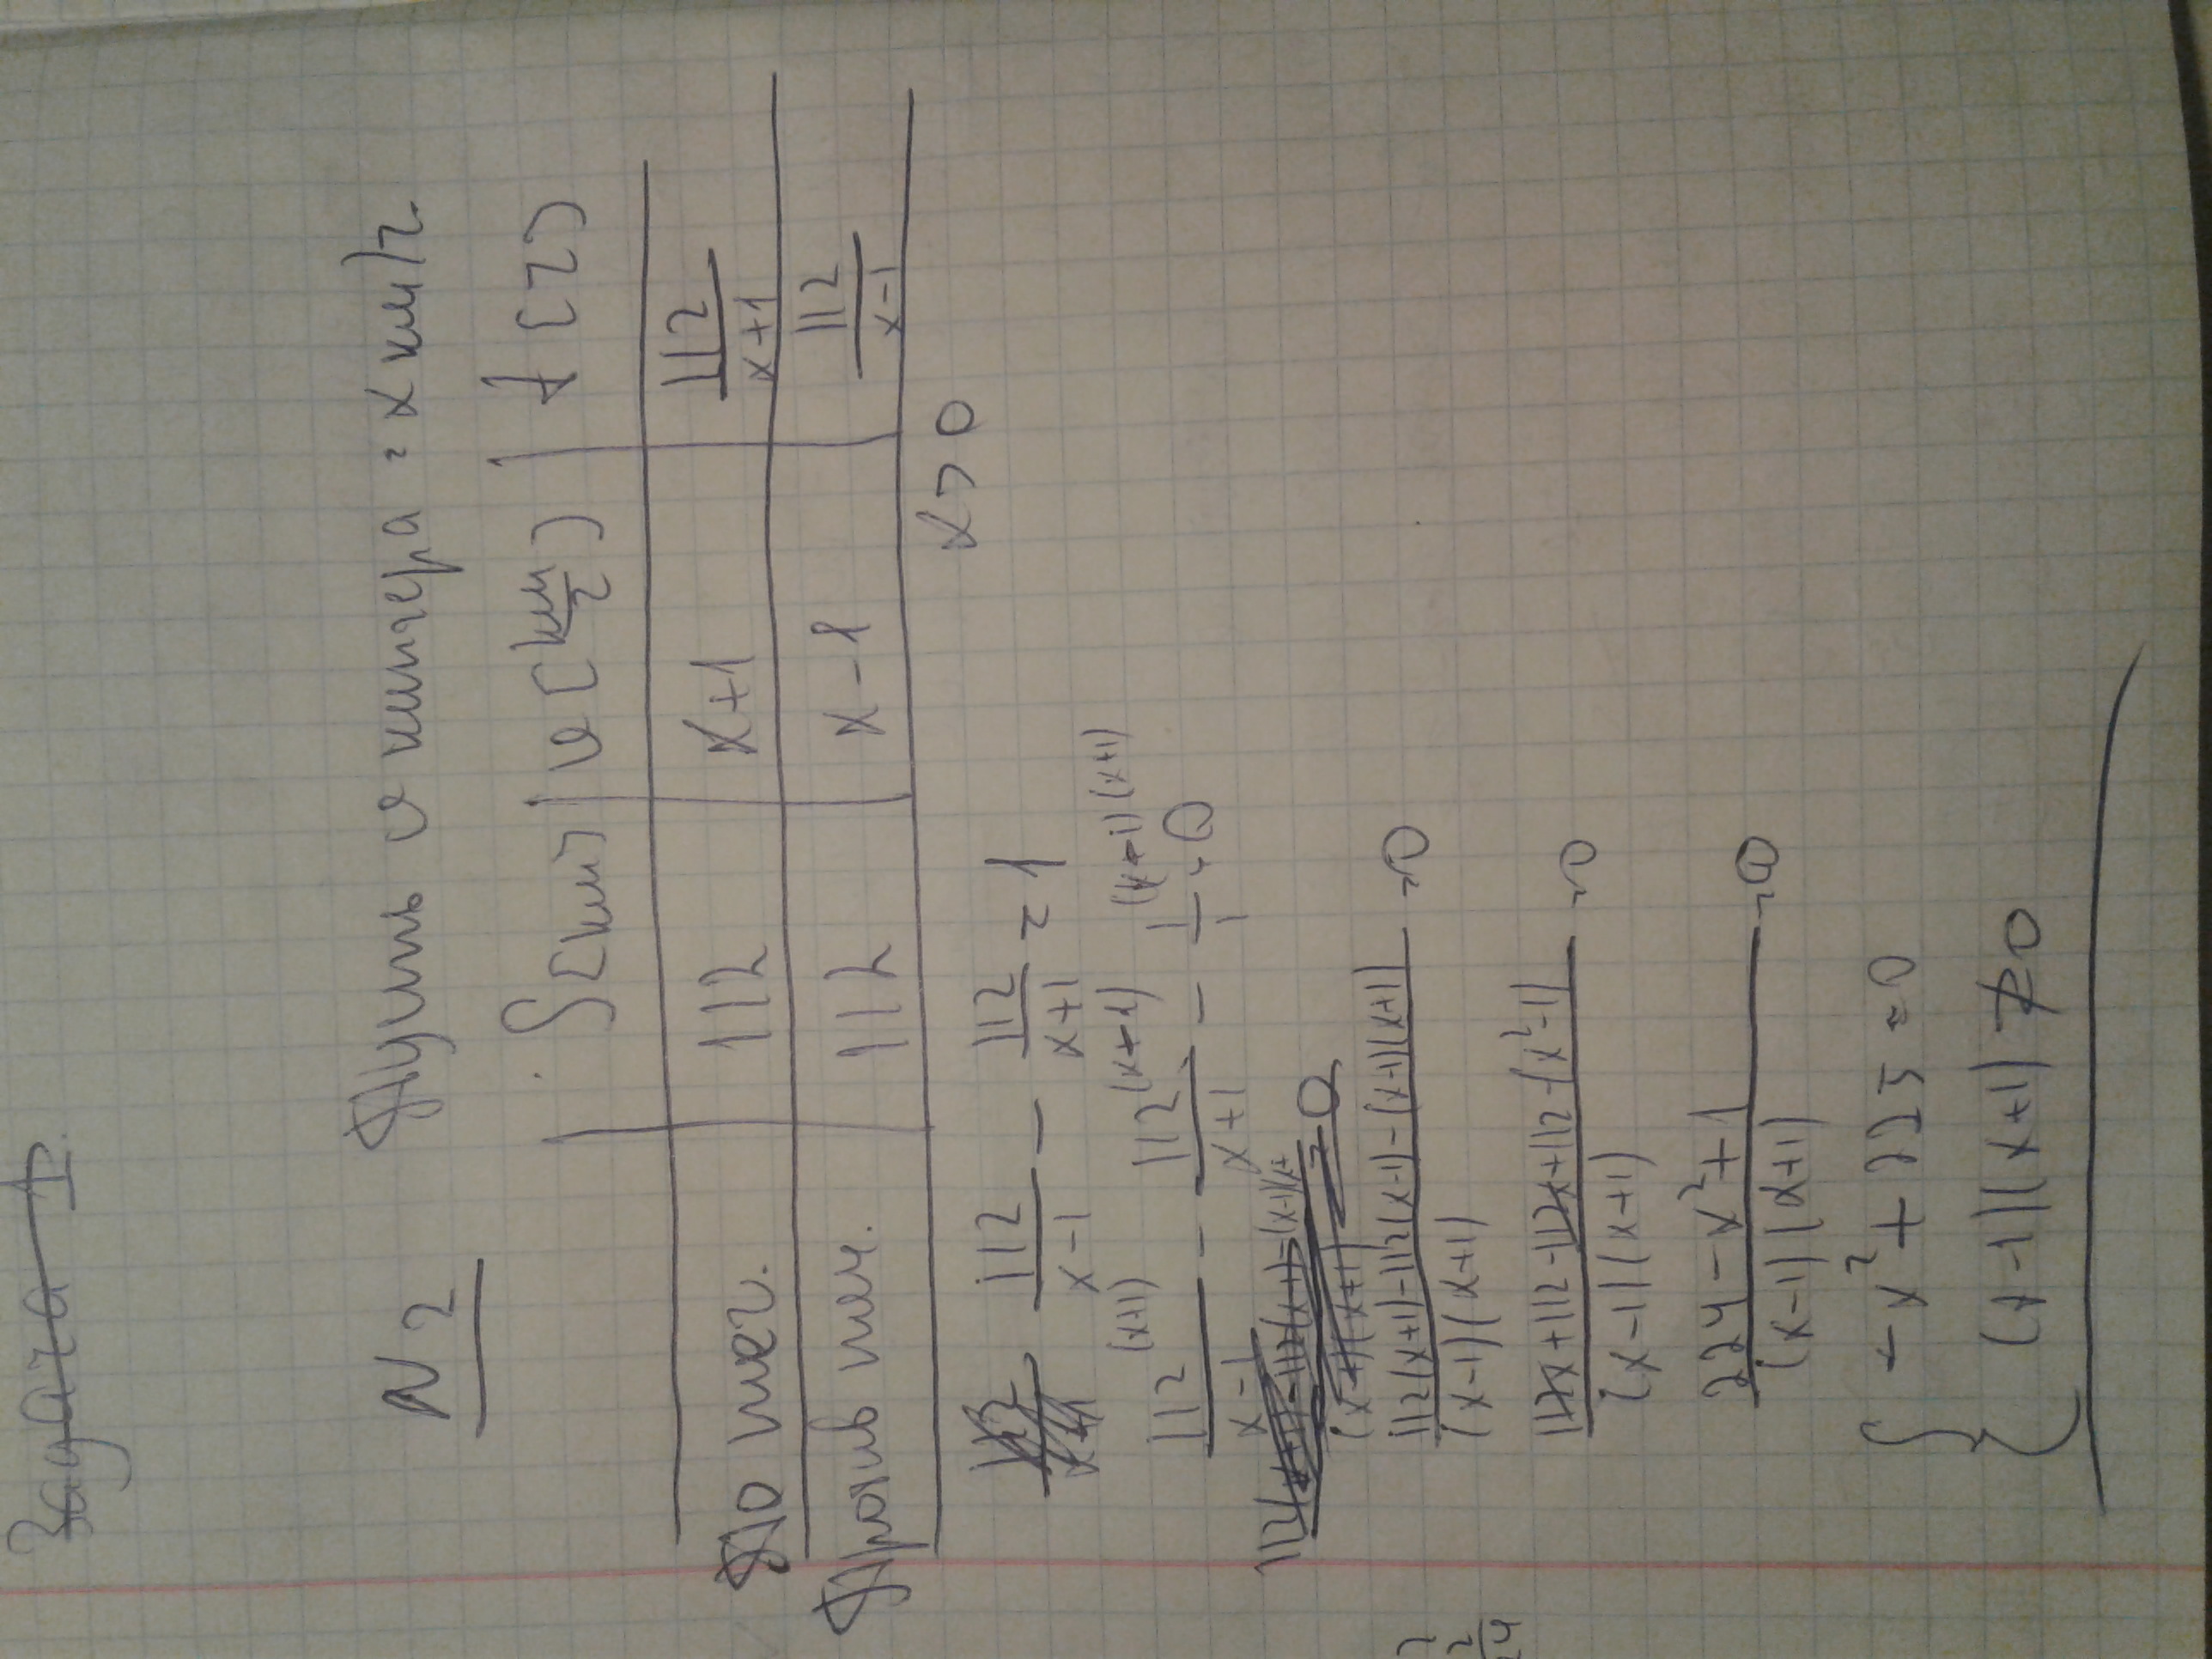 Задача 1.
N2
Пусть v катера = x км/ч.
S[км] | v[км/ч] | t[ч]
По теч. | 112 | x+1 | 112/(x+1)
Против теч. | 112 | x-1 | 112/(x-1)
x > 0
112/(x-1) - 112/(x+1) = 1
112^(x+1)/(x-1) - 112^(x+1)/(x+1) - 1^(x+1)(x+1)/1 = 0
(112(x+1)-112(x-1)-(x-1)(x+1))/((x-1)(x+1)) = 0
(112x+112-112x+112-(x²-1))/((x-1)(x+1)) = 0
(224-x²+1)/((x-1)(x+1)) = 0
{ -x²+225=0
(x-1)(x+1) ≠ 0